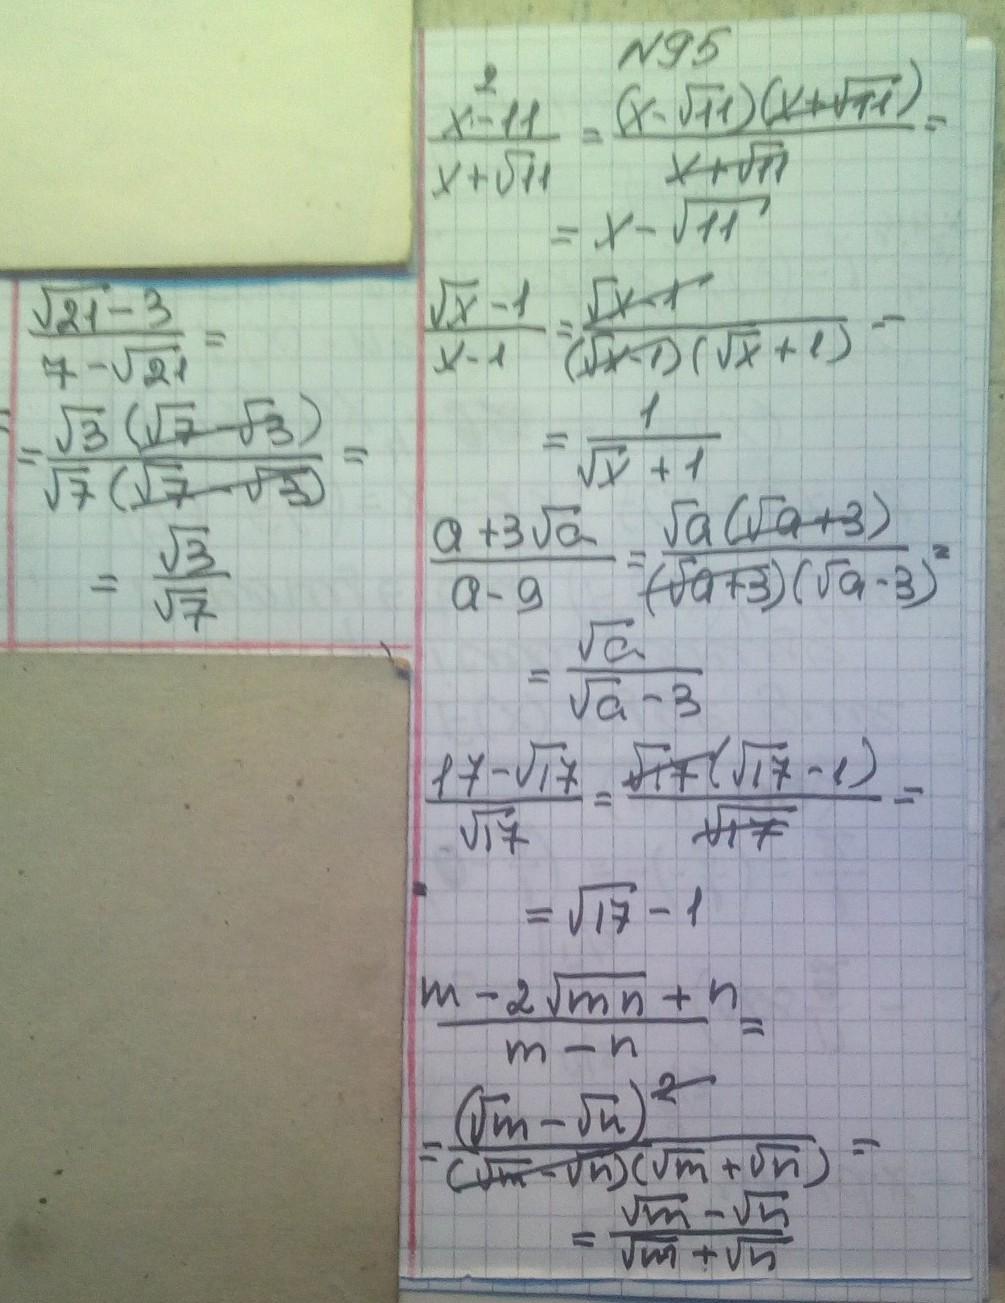 N95
(x²-11)/(x+√11) = ((x-√11)(x+√11))/(x+√11) =
= x-√11
(√x-1)/(x-1) = (√x-1)/((√x-1)(√x+1)) =
= 1/(√x+1)
(a+3√a)/(a-9) = (√a(√a+3))/((√a+3)(√a-3)) =
= √a/(√a-3)
(17-√17)/√17 = (√17(√17-1))/√17 =
= √17-1
(m-2√mn+n)/(m-n) =
= (√m-√n)²/((√m-√n)(√m+√n)) =
= (√m-√n)/(√m+√n)
(√21-3)/(7-√21) =
= (√3(√7-√3))/(√7(√7-√3)) =
= √3/√7